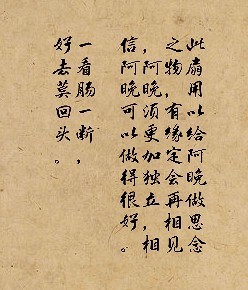 此扇用以给阿晚做思念
之物，有缘定会再相见
，阿晚须更加独立，相
信阿晚可以做得很好。
一看肠一断，
好去莫回头。